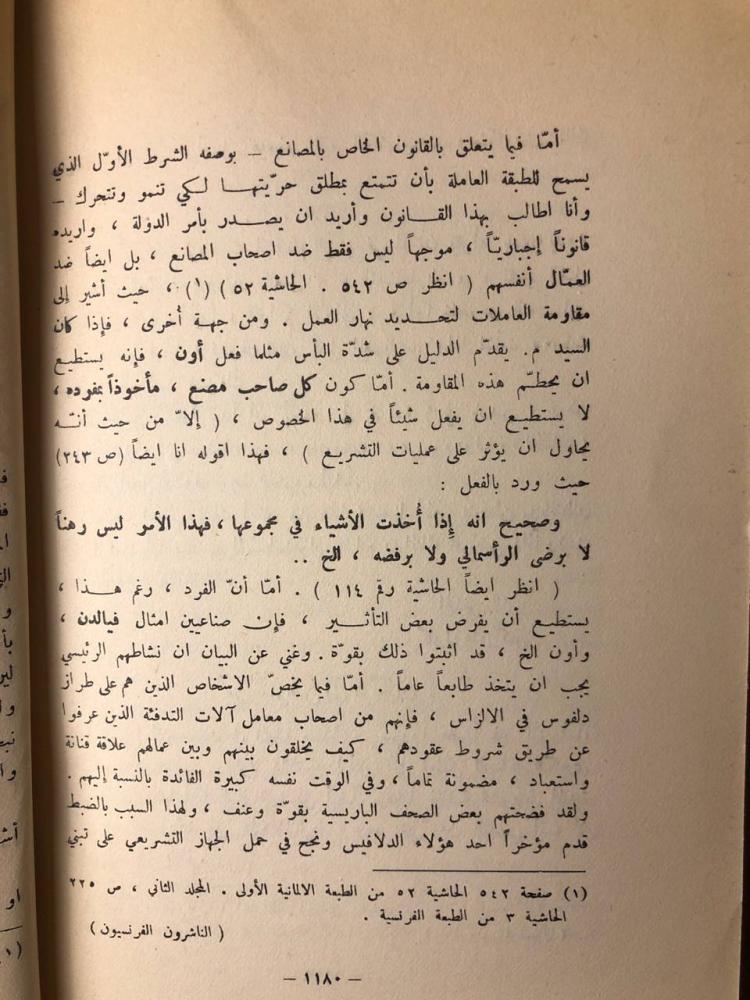 أمّا فيما يتعلق بالقانون الخاص بالمصانع – بوصفه الشرط الأوّل الذي
يسمح للطبقة العاملة بأن تتمتع بمطلق حرّيتهــا لـكي تنمو وتتحرك –
وأنا اطالب بهذا القــانون وأريد ان يصــدر بأمر الدولة ، واريده
قانوناً إجباريّاً ، موجهاً ليس فقط ضد اصحاب المصانع ، بل ايضاً ضد
العمّال أنفسهم ( انظر ص ٥٤٢ . الحاشية ٥٢ ) (١) ، حيث أشير إلى
مقاومة العاملات لتحــديد نهار العمل . ومن جهــة أخرى ، فإذا كان
السيد م. يقدّم الدليل على شدّة البأس مثلما فعل أون ، فإنه يستطيع
ان يحطــم هذه المقاومة . أمّا كون كل صاحب مصنع ، مأخوذاً بمفرده ،
لا يستطيع ان يفعل شيئاً في هذا الخصوص ، ( إلاّ من حيث أنــه
يحاول ان يؤثر على عمليات التشريع ) ، فهذا اقوله انا ايضاً (ص ٢٤٣)
حيث ورد بالفعل :
وصحيح انه إذا أُخذت الأشياء في مجموعها ، فهذا الأمر ليس رهناً
لا برضى الرأسمالي ولا برفضه ، الخ ..
( انظر ايضاً الحاشية رقم ١١٤ ) . أمّا أنّ الفرد ، رغم هــذا ،
يستطيــع أن يفرض بعض التأثــير ، فإن صناعيين امثال فيالدن ،
وأون الخ ، قد اثبتوا ذلك بقوّة . وغني عن البيان ان نشاطهم الرئيسي
يجب ان يتخذ طابعاً عاماً . أمّا فيما يخصّ الاشخاص الذين هم على طراز
دلفوس في الالزاس ، فإنهم من اصحاب معامل آلات التدفئة الذين عرفوا
عن طريق شروط عقودهم ، كيف يخلقون بينهم وبين عمالهم علاقة قنانة
واستعباد ، مضمونة تماماً ، وفي الوقت نفسه كبيرة الفائدة بالنسبة إليهم .
ولقد فضحتهم بعض الصحف الباريسية بقوّة وعنف ، ولهذا السبب بالضبط
قدم مؤخراً احد هؤلاء الدلافيس ونجح في حمل الجهاز التشريعي على تبني
(١) صفحة ٥٤٢ الحاشية ٥٢ من الطبعة الالمانية الأولى . المجلد الثاني ، ص ٢٢٥
الحاشية ٣ من الطبعة الفرنسية .
( الناشرون الفرنسيون )
– ١١٨٠ –